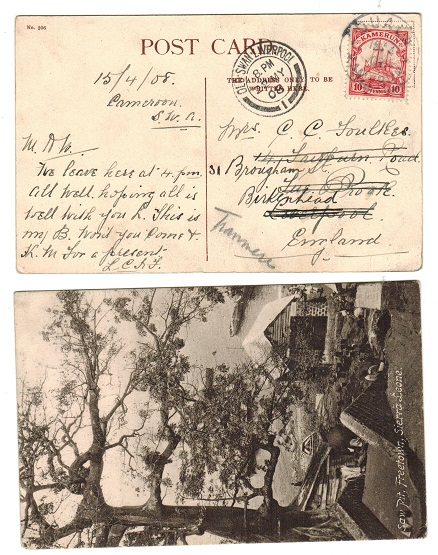 No. 206
POST CARD
15/4/08.
Cameroon.
S.W.A.
M. D W.
We leave here at 4. pm
All Well. hoping all is
well with you L. This is
my B. Wont you Come &
K. M For a present.
L.C.A.F.
THE ADDRESS ONLY TO BE
WRITTEN HERE.
OLD SWAN LIVERPOOL
8 PM
MY
08
KAMERUN
10 PFENNIG 10
Mrs. C. C. Foulkes
14, Fairburn Road
31 Brougham St
Tue Brook
Birkenhead
Liverpool.
England.
Tranmere
Saw Pit, Freetown, Sierra Leone.